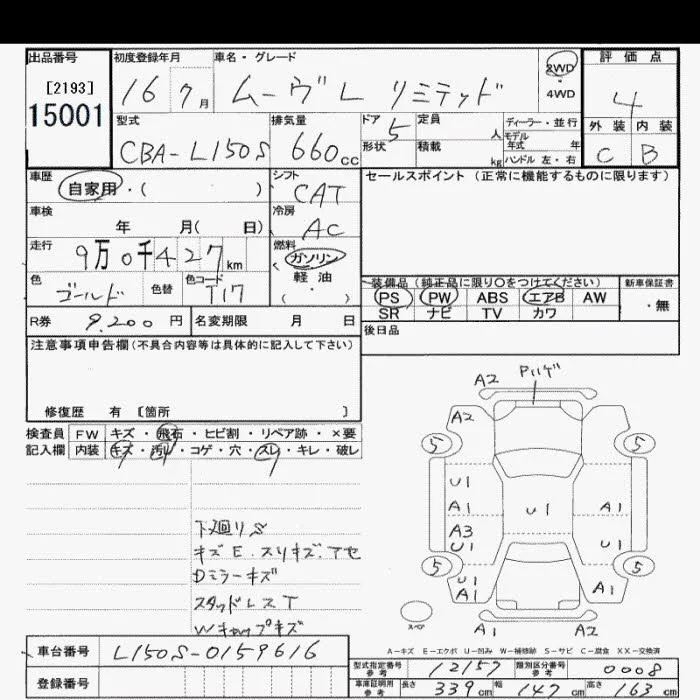 出品番号
[2193]
15001
初度登録年月
16 7月
車名・グレード
ムーヴL リミテッド
2WD
・
4WD
評価点
4
外装 内装
C B
型式
CBA-L150S
排気量
660cc
ドア 5
形状
定員 人
積載 kg
ディーラー・並行
モデル
年式 年
ハンドル 左・右
車歴
自家用・( )
シフト
CAT
セールスポイント (正常に機能するものに限ります)
車検
年 月( 日)
冷房
AC
走行
9万0千427km
燃料
ガソリン
軽油
( ・ )
色
ゴールド
色替
色コード
T17
装備品 (純正品に限り○をつけてください)
新車保証書
PS PW ABS エアB AW
SR ナビ TV カワ
・無
R券 9,200円
名変期限 月 日
後日品
注意事項申告欄(不具合内容等は具体的に記入して下さい)
修復歴 有 [箇所 ]
検査員 FW キズ・飛石・ヒビ割・リペア跡・×要
記入欄 内装 キズ・汚れ・コゲ・穴・スレ・キレ・破レ
下廻りS
キズE.スリキズ.アセ
Dミラーキズ
スタッドレスT
Wキャップキズ
A2 Pハゲ
A2
5 5
U1
A1 U1 A1
A3
U1 U1
5 5
U1
A1 A1
スペア
A1 A2
A－キズ E－エクボ U－凹み W－補修跡 S－サビ C－腐食 XX－交換済
車台番号 L150S-0159616
登録番号
型式指定番号
参考
12157
類別区分番号
参考
0008
車庫証明用
参考
長さ 339cm 幅 147cm 高さ 163cm